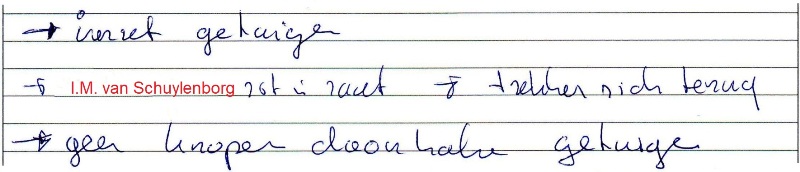 → inzet getuigen
→ I.M. van Schuylenborg zat in zaal → trekken zich terug
→ geen knopen doorhalen getuigen